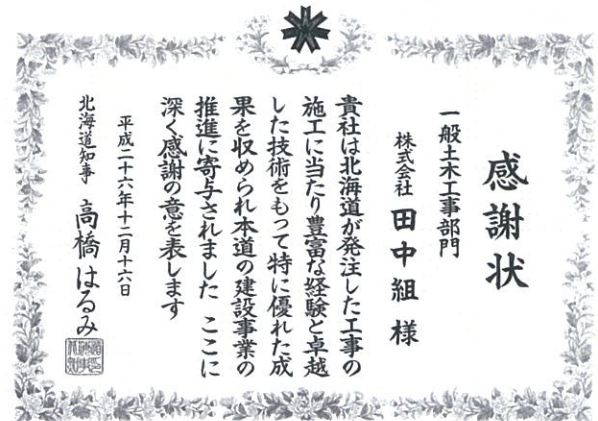 感謝状
一般土木工事部門
株式会社 田中組 様
貴社は北海道が発注した工事の
施工に当たり豊富な経験と卓越
した技術をもって特に優れた成
果を収められ本道の建設事業の
推進に寄与されました ここに
深く感謝の意を表します
平成二十六年十二月十六日
北海道知事 高橋はるみ